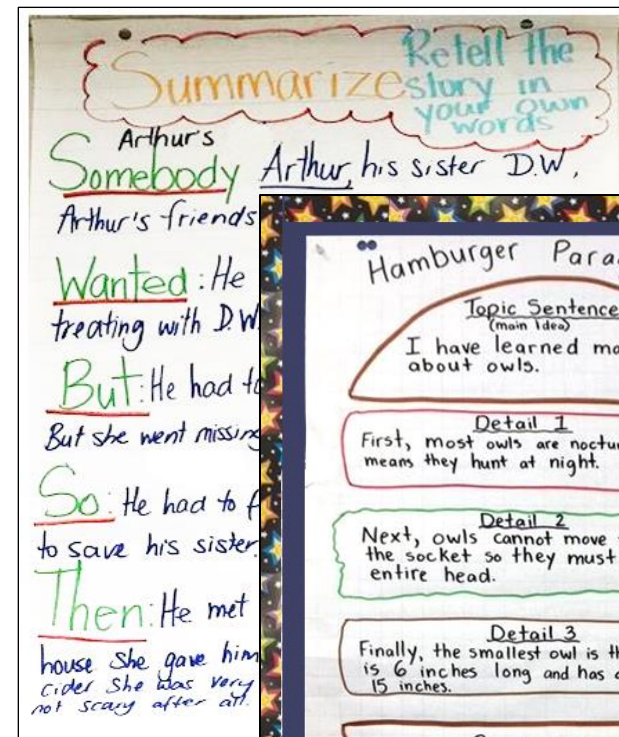 Summarize
Retell the
story in
your own
words
Arthur's
Somebody Arthur, his sister D.W,
Arthur's friends
Wanted: He
treating with D.W.
But: He had to
But she went missing
So: He had to f
to save his sister.
Then: He met
house She gave him
cider She was very
not scary after all.
Hamburger Para
Topic Sentence
(main Idea)
I have learned ma
about owls.
Detail 1
First, most owls are noctur
means they hunt at night.
Detail 2
Next, owls cannot move
the socket so they must
entire head.
Detail 3
Finally, the smallest owl is th
is 6 inches long and has a
15 inches.